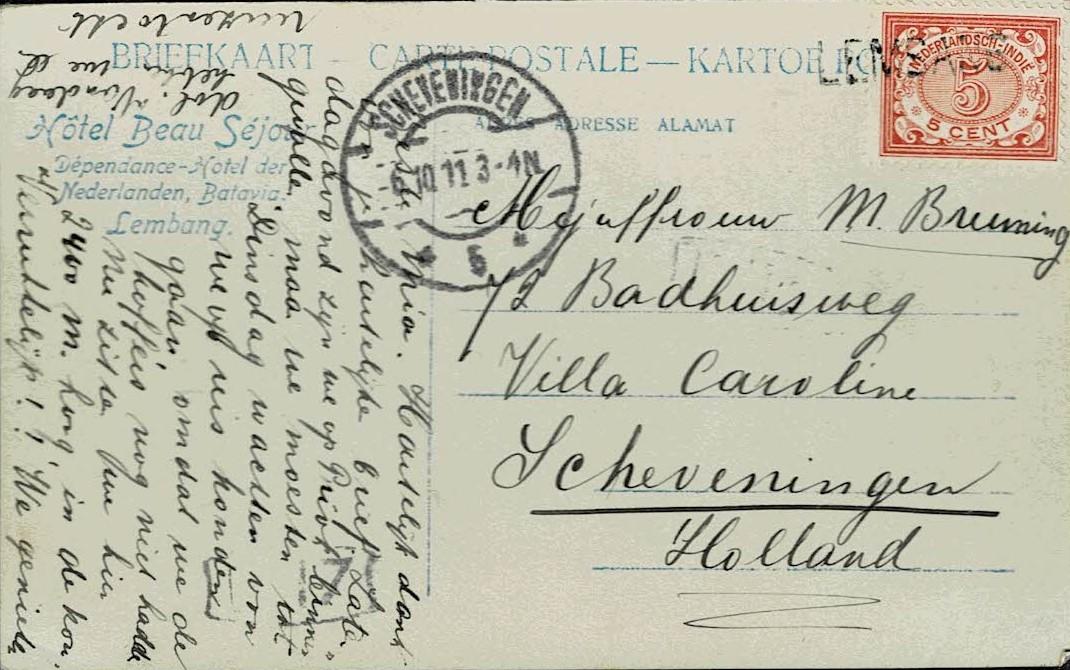 BRIEFKAART — CARTE POSTALE — KARTOE POS
ADRES ADRESSE ALAMAT
LEMBANG
NEDERLANDSCH-INDIE
5
5 CENT
SCHEVENINGEN
6.10.11 3-4N
5
Hôtel Beau Séjour
Dépendance-Hotel der
Nederlanden, Batavia.
Lembang.
Mejuffrouw M. Breuning
72 Badhuisweg
Villa Caroline
Scheveningen
Holland
Beste Mia. Hartelijk dank
je hartelijke brief. Zater
dagavond zijn we op binnen
maar we moesten tot
Dinsdag wachten voor
we op reis konden
gaan, omdat we de
koffers nog niet hadden
Nu zitten we hier
2400 M. hoog in de kou.
Verrukkelijk!! We genieten